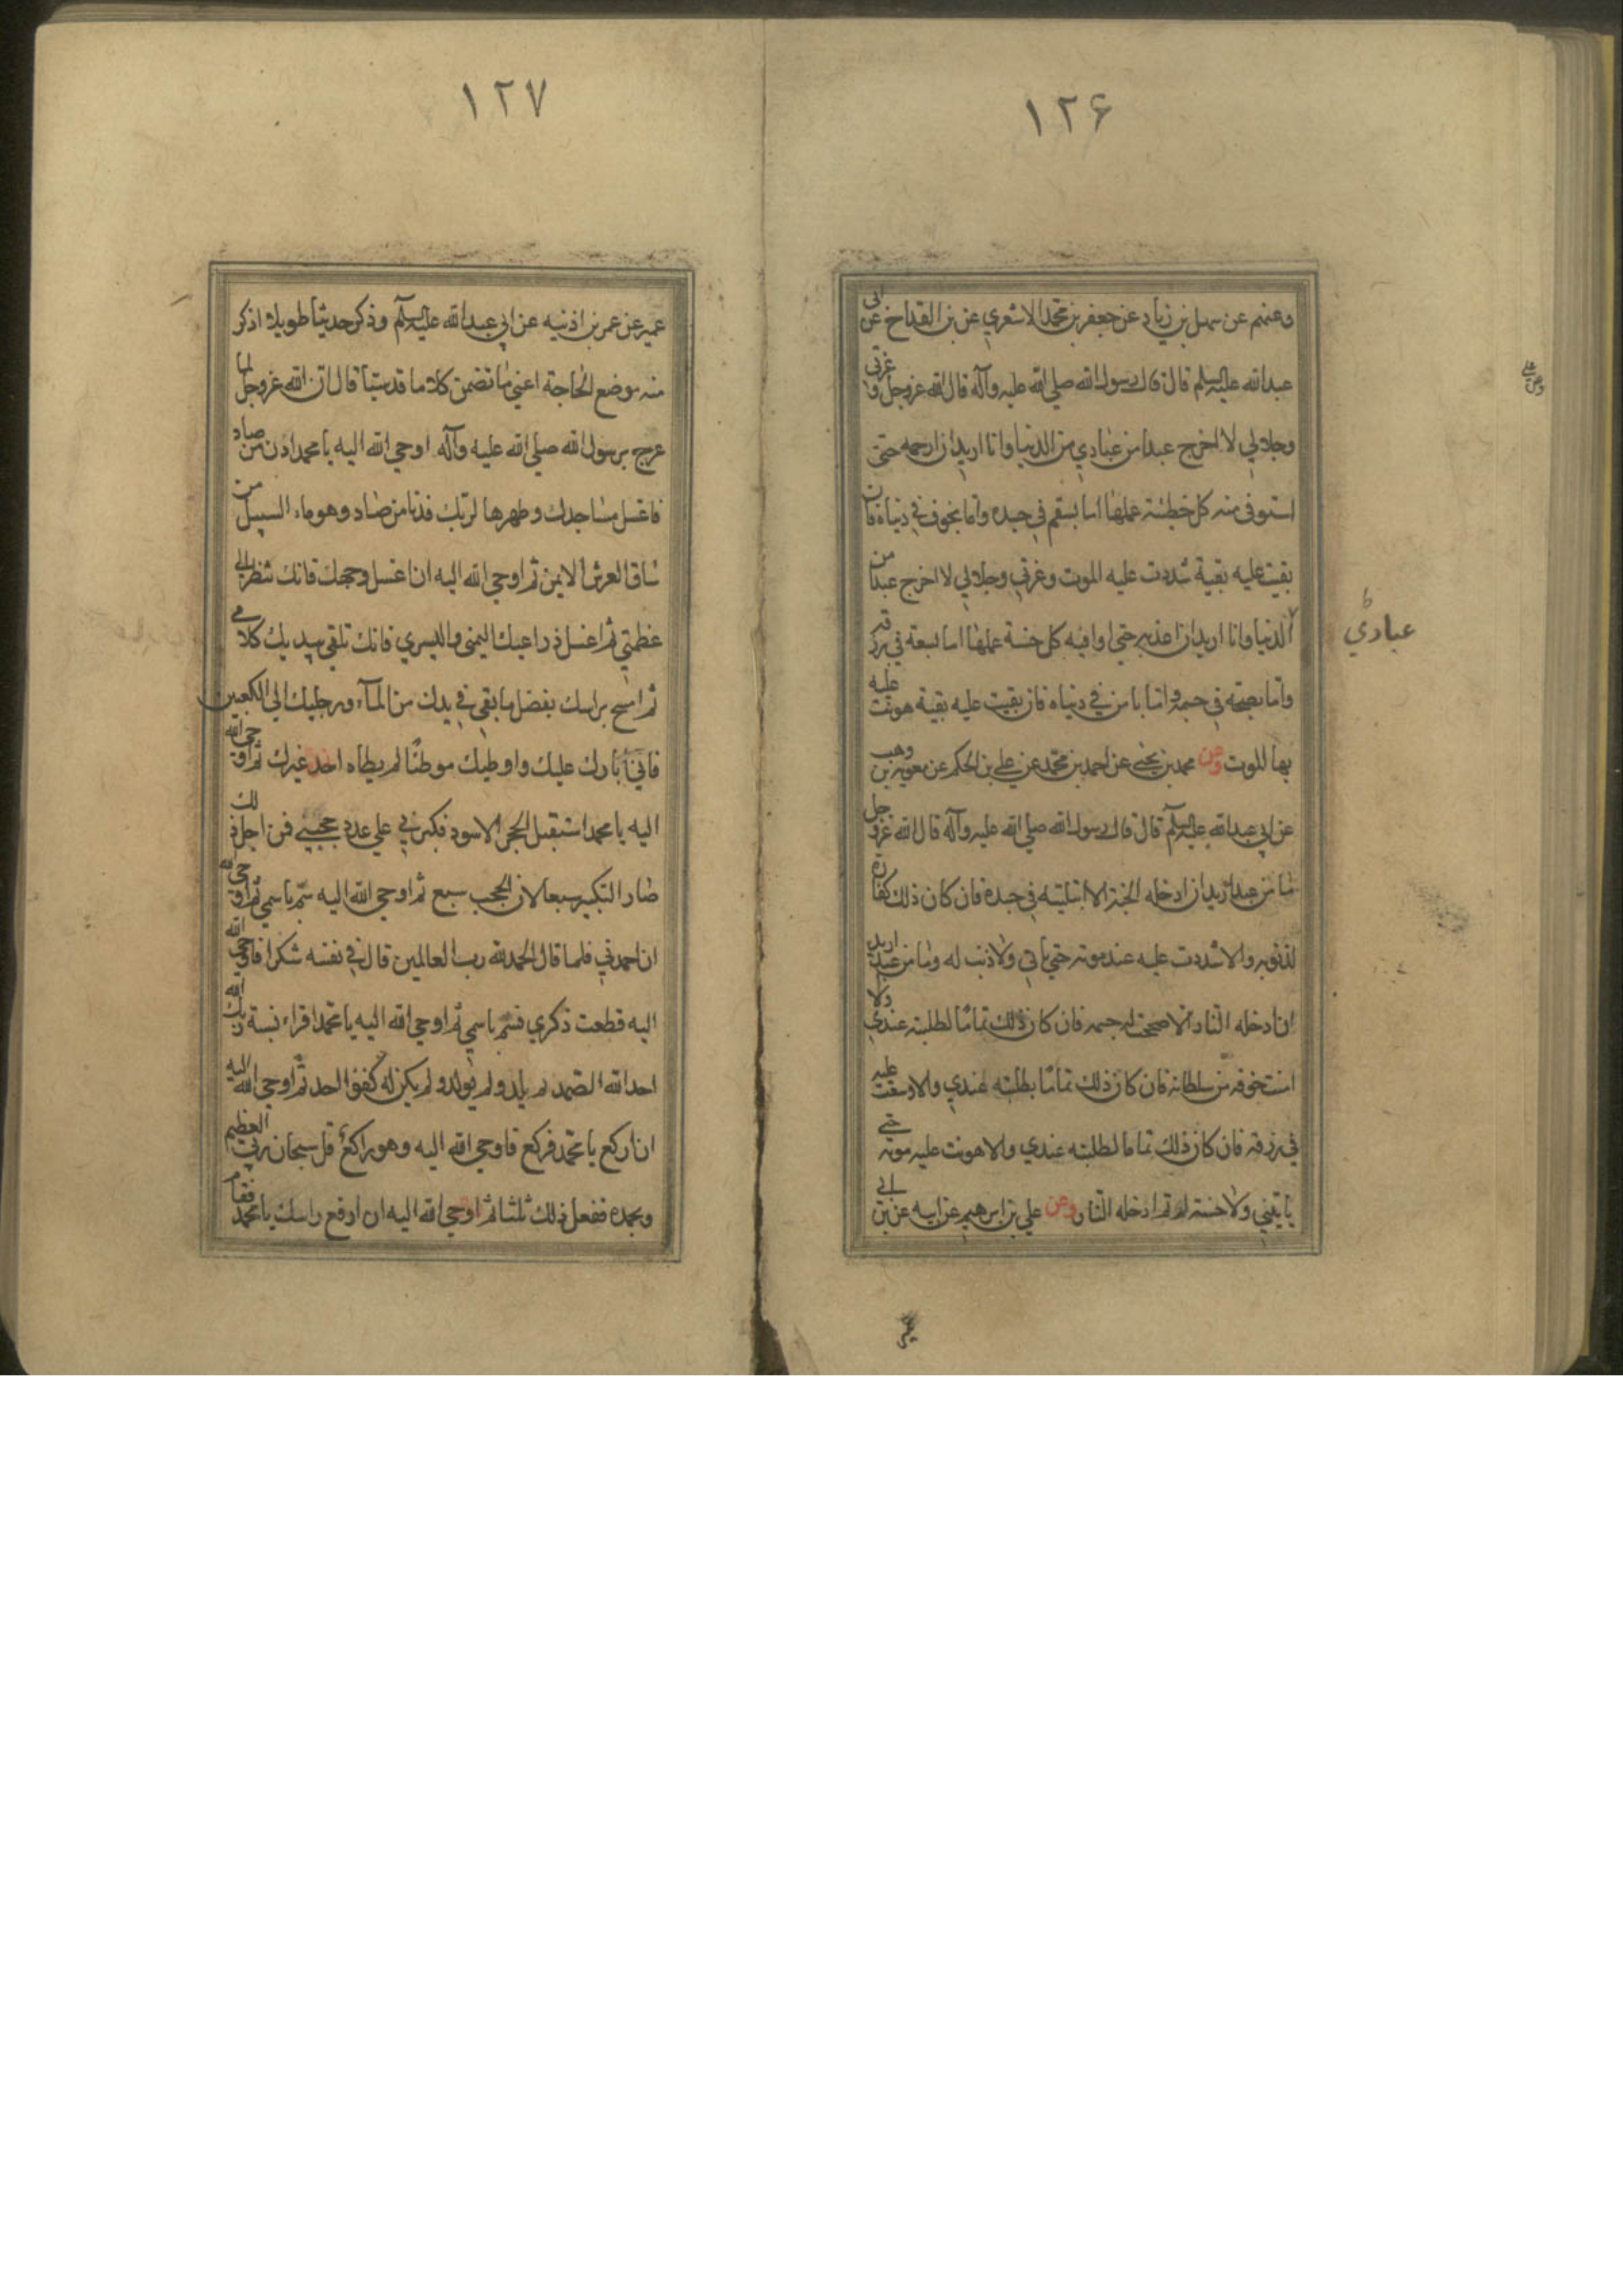 ١٢۶
وعنهم عن سهل بن زياد عن جعفر بن محمد الاشعري عن بن القداح عن ابي
عبد الله عليه السلم قال قال رسول الله صلي الله عليه وآله قال الله عز وجل وعزتي
وجلالي لا اخرج عبدا من عبادي من الدنيا وانا اريد ان ارحمه حتى
استوفى منه كل خطيئة عملها اما بسقم في جسده واما بخوف في دنياه فان
بقيت عليه بقية شددت عليه الموت وعزتي وجلالي لا اخرج عبدا من
الدنيا وانا اريد ان اعذبه حتى اوافيه كل حسنة عملها اما بسعة في رزقه
عبادي
واما بصحة في جسمه واما بامن في دنياه فان بقيت عليه بقية هونت عليه
بها الموت وعن محمد بن يحيى عن احمد بن محمد عن علي بن الحكم عن معوية بن وهب
عن ابي عبد الله عليه السلم قال قال رسول الله صلي الله عليه وآله قال الله عز وجل
ما من عبد اريد ان ادخله الجنة الا ابتليته في جسده فان كان ذلك كفارة
لذنوبه والا شددت عليه عند موته حتي ياتي ولا ذنب له وما من عبد اريد
ان ادخله النار الا صححت له جسمه فان كان ذلك تماما لطلبته عندي والا
امنت خوفه من سلطانه فان كان ذلك تماما بطلبته عندي والا وسعت عليه
في رزقه فان كان ذلك تماما لطلبته عندي والا هونت عليه موته حتى
ياتيني ولا حسنة له ثم ادخله النار وعن علي بن ابرهيم عن ابيه عن بن ابي
عمير
١٢٧
عمير عن عمر بن اذنيه عن ابي عبد الله عليه السلم وذكر حديثا طويلا اذكر
منه موضع الحاجة اعني ما تضمن كلاما قدسيا قال ان الله عز وجل لما
عرج برسول الله صلي الله عليه وآله اوحي الله اليه يا محمد ادن من صاد
فاغسل مساجدك وطهرها لربك فدنا من صاد وهو ماء السيل من
ساق العرش الايمن ثم اوحي الله اليه ان اغسل وجهك فانك تنظر الي
عظمتي ثم اغسل ذراعيك اليمنى واليسري فانك تلقي بيديك كلامي
ثم امسح براسك بفضل ما بقي في يدك من المآء ورجليك الي الكعبين
فاني ابارك عليك واوطيك موطئا لم يطاه احد غيرك ثم اوحي الله
اليه يا محمد استقبل الحجر الاسود فكبرني علي عدد حجبي فمن اجل ذلك
صار التكبير سبعا لان الحجب سبع ثم اوحي الله اليه سم باسمي ثم اوحي الله
ان احمدني فلما قال الحمد لله رب العالمين قال في نفسه شكرا فاوحي الله
اليه قطعت ذكري فسم باسمي ثم اوحي الله اليه يا محمد اقراء نسبة ربك الله
احد الله الصمد لم يلد ولم يولد ولم يكن له كفوا احد ثم اوحي الله اليه
ان اركع يا محمد فركع فاوحي الله اليه وهو راكع قل سبحان ربي العظيم
وبحمده ففعل ذلك ثلثا ثم اوحي الله اليه ان ارفع راسك يا محمد فقام